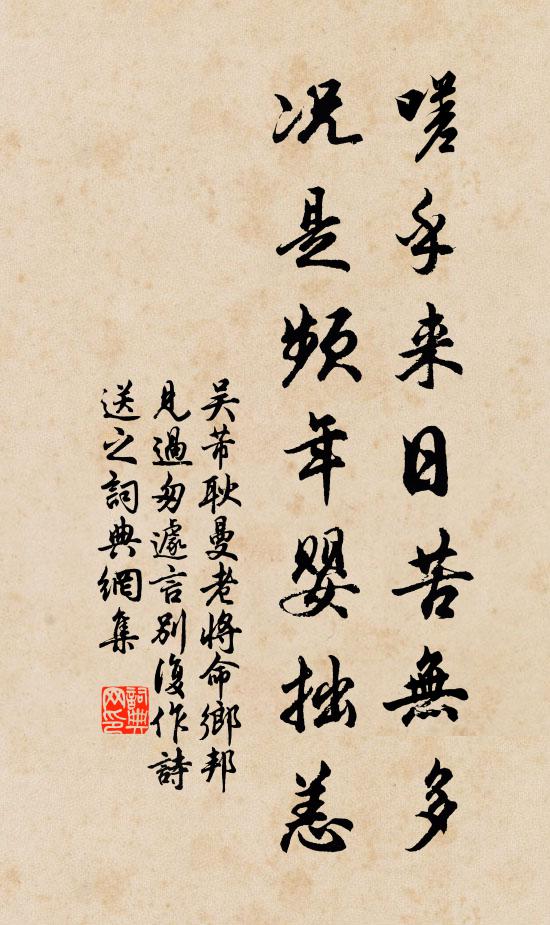 嗟乎来日苦無多
况是頻年嬰拙恙
吴芾耿曼老將命鄉邦
見過匆遽言别復作詩
送之詞典網集
詞典網印